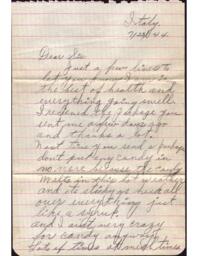 Italy
7/23/44
Dear Sis
Just a few lines to
let you know I'm in
the best of health and
everything going well.
I received the package you
sent me a few days ago
and thanks a lot.
Next time you send a package
don't put any candy in
no more because the candy
melts in this hot weather
and its sticky as heck all
over everything just
like a syrup.
and I ain't very crazy
for candy anyway
Lots of times at meal times